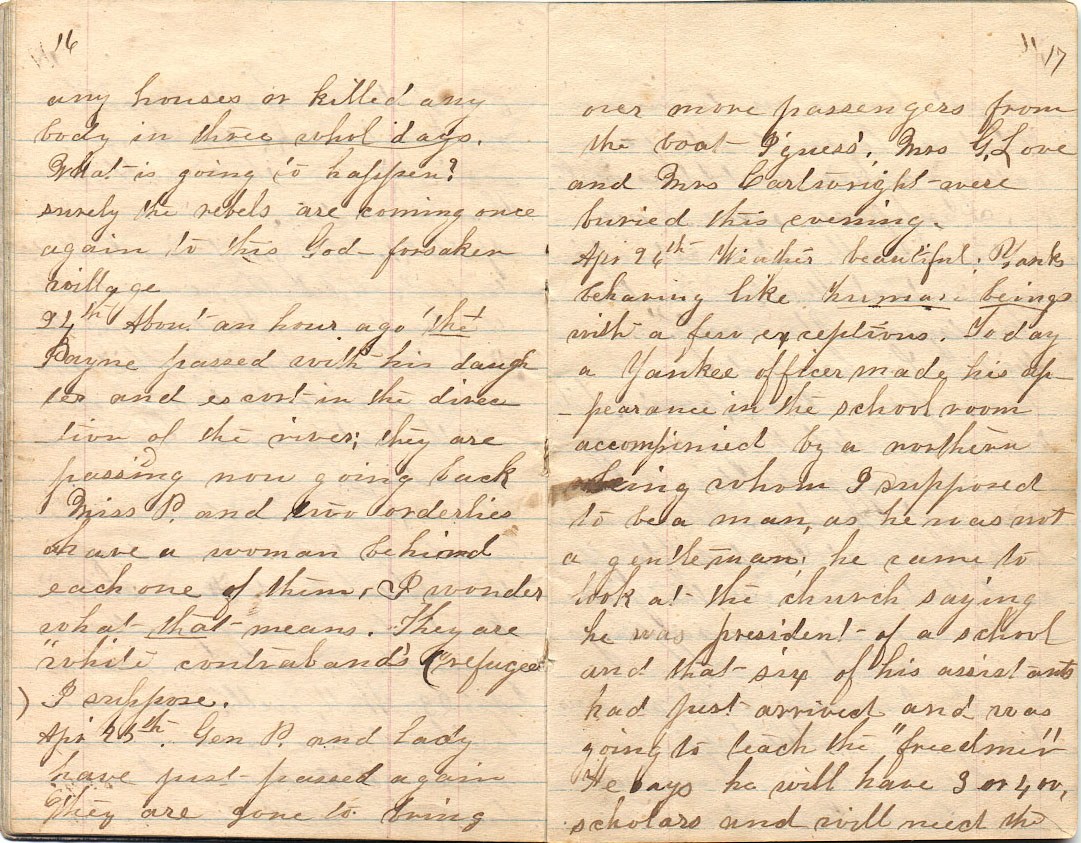 16
any houses or killed any
body in three whol days.
What is going to happen?
surely the rebels are coming once
again to this God-forsaken
village
24th About an hour ago the
Payne passed with his daugh
ter and escort in the direc
tion of the river; they are
passing now going back
Miss P. and two orderlies
have a woman behind
each one of them, I wonder
what that means. They are
"white contraband's (refugee
) I suppose.
Apr 25th. Gen P. and Lady
have just passed again
They are gone to bring
17
over more passengers from
the boat I guess'. Mrs G. Love
and Mrs Cartwright were
buried this evening.
Apr 26th Weather beautiful; Yanks
behaving like human beings
with a few exceptions. Today
a Yankee officer made his ap-
-pearance in the school room
accompinied by a northern
being whom I supposed
to be a man, as he was not
a gentleman; he came to
look at the church saying
he was president of a school
and that six of his assistants
had just arrived and was
going to teach the "freedmen"
He says he will have 3 or 400,
scholars and will need the